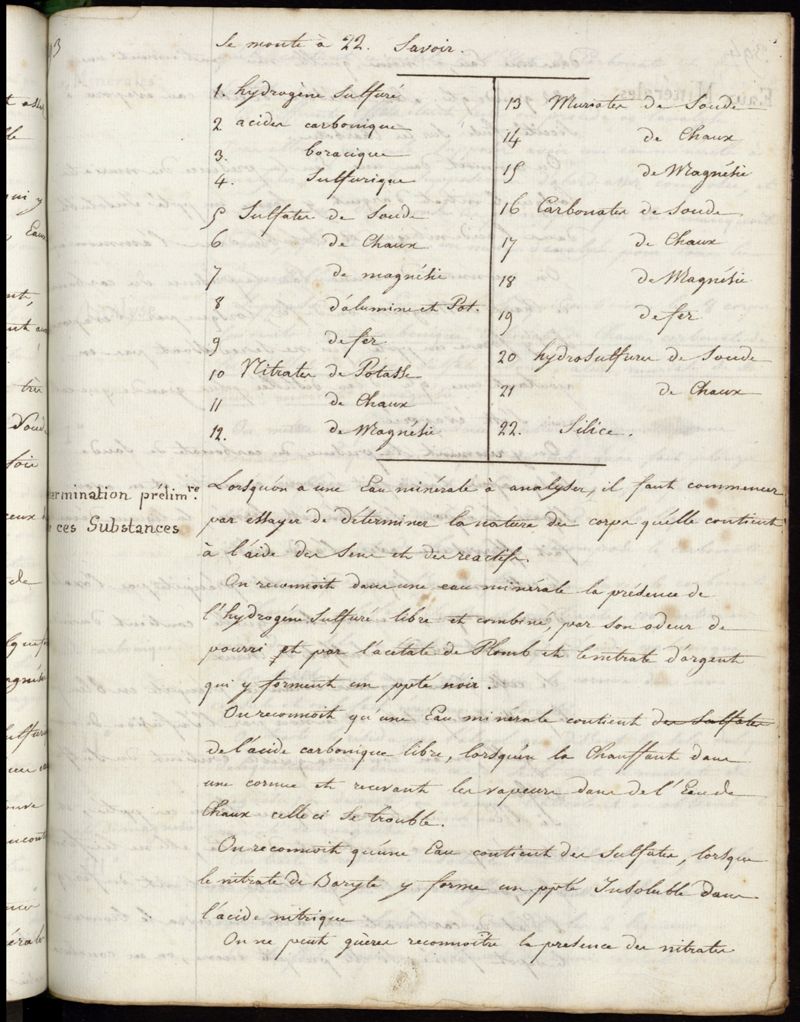 3
se monte à 22. Savoir.
1. hydrogène sulfuré
2 acides carbonique
3. boracique
4. Sulfurique
5 Sulfates de Soude
6 de Chaux
7 de magnésie
8 d'alumine et Pot.
9 de fer
10 Nitrates de Potasse
11 de Chaux
12. de Magnésie
13 Muriates de Soude
14 de Chaux
15 de Magnésie
16 Carbonates de Soude
17 de Chaux
18 de Magnésie
19 de fer
20 hydrosulfures de Soude
21 de Chaux
22. Silice.
ermination prélim.re
ces Substances
Lorsqu'on a une Eau minérale à analyser, il faut commencer
par essayer de déterminer la nature des corps qu'elle contient
à l'aide des Sens et des reactifs.
On reconnoit dans une eau minérale la présence de
l'hydrogène Sulfuré libre et combiné, par son odeur de
pourri et par l'acétate de Plomb et le nitrate d'argent
qui y forment un ppté noir.
On reconnoit qu'une Eau minérale contient des Sulfates
de l'acide carbonique libre, lorsqu'en la Chauffant dans
une cornue et recevant les vapeurs dans de l'Eau de
Chaux celle ci se trouble.
On reconnoit qu'une Eau contient des Sulfates, lorsque
le nitrate de Baryte y forme un ppté Insoluble dans
l'acide nitrique
On ne peut guères reconnoître la presence des nitrates